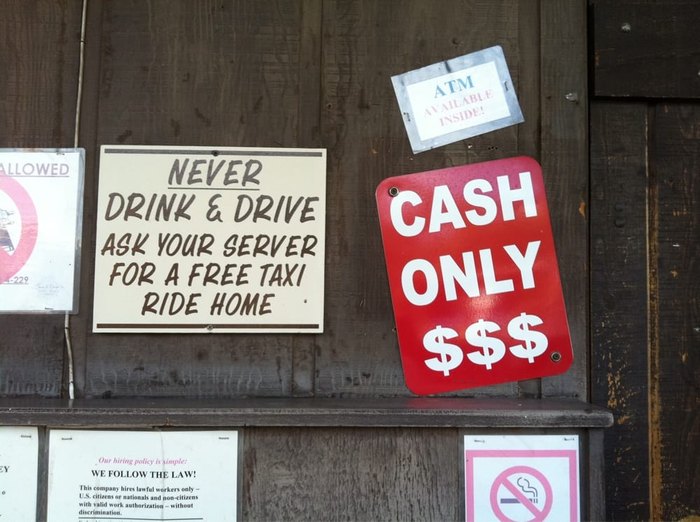 ALLOWED
-229
NEVER
DRINK & DRIVE
ASK YOUR SERVER
FOR A FREE TAXI
RIDE HOME
ATM
AVAILABLE
INSIDE!
CASH
ONLY
$$$
EY
Our hiring policy is simple:
WE FOLLOW THE LAW!
This company hires lawful workers only –
U.S. citizens or nationals and non-citizens
with valid work authorization – without
discrimination.